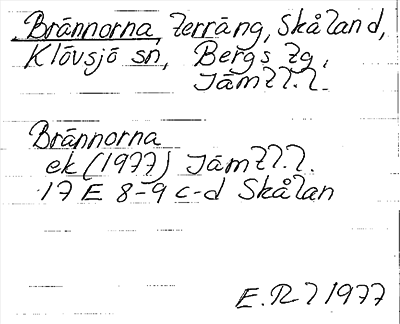 Brännorna, terräng, Skåland,
Klövsjö sn, Bergs tg,
Jämtl.l.
Brännorna
ek (1977) Jämtl.l.
17 E 8-9 c-d Skålan
E.R l 1977